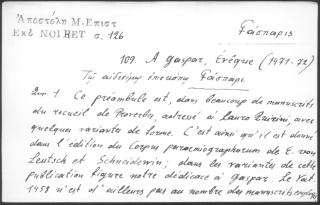 Ἀποστόλη Μ. Επιστ
Εκδ NOIRET σ. 126
Γάσπαρις
109. A Gaspar, Evêque (1471-72)
Τῷ αἰδεσίμῳ ἐπισκόπῳ Γάσπαρι
1. Ce préambule est, dans beaucoup de manuscrits
du recueil de Proverbes, adressé à Lauro Quirini, avec
quelques variantes de forme. C'est ainsi qu'il est donné
dans l'édition du Corpus paroemiographorum de E. von
Leutsch et Schneidewin; dans les variantes de cette
publication figure notre dédicace à Gaspar. Le Vat.
1458 n'est d'ailleurs pas au nombre des manuscrits employés